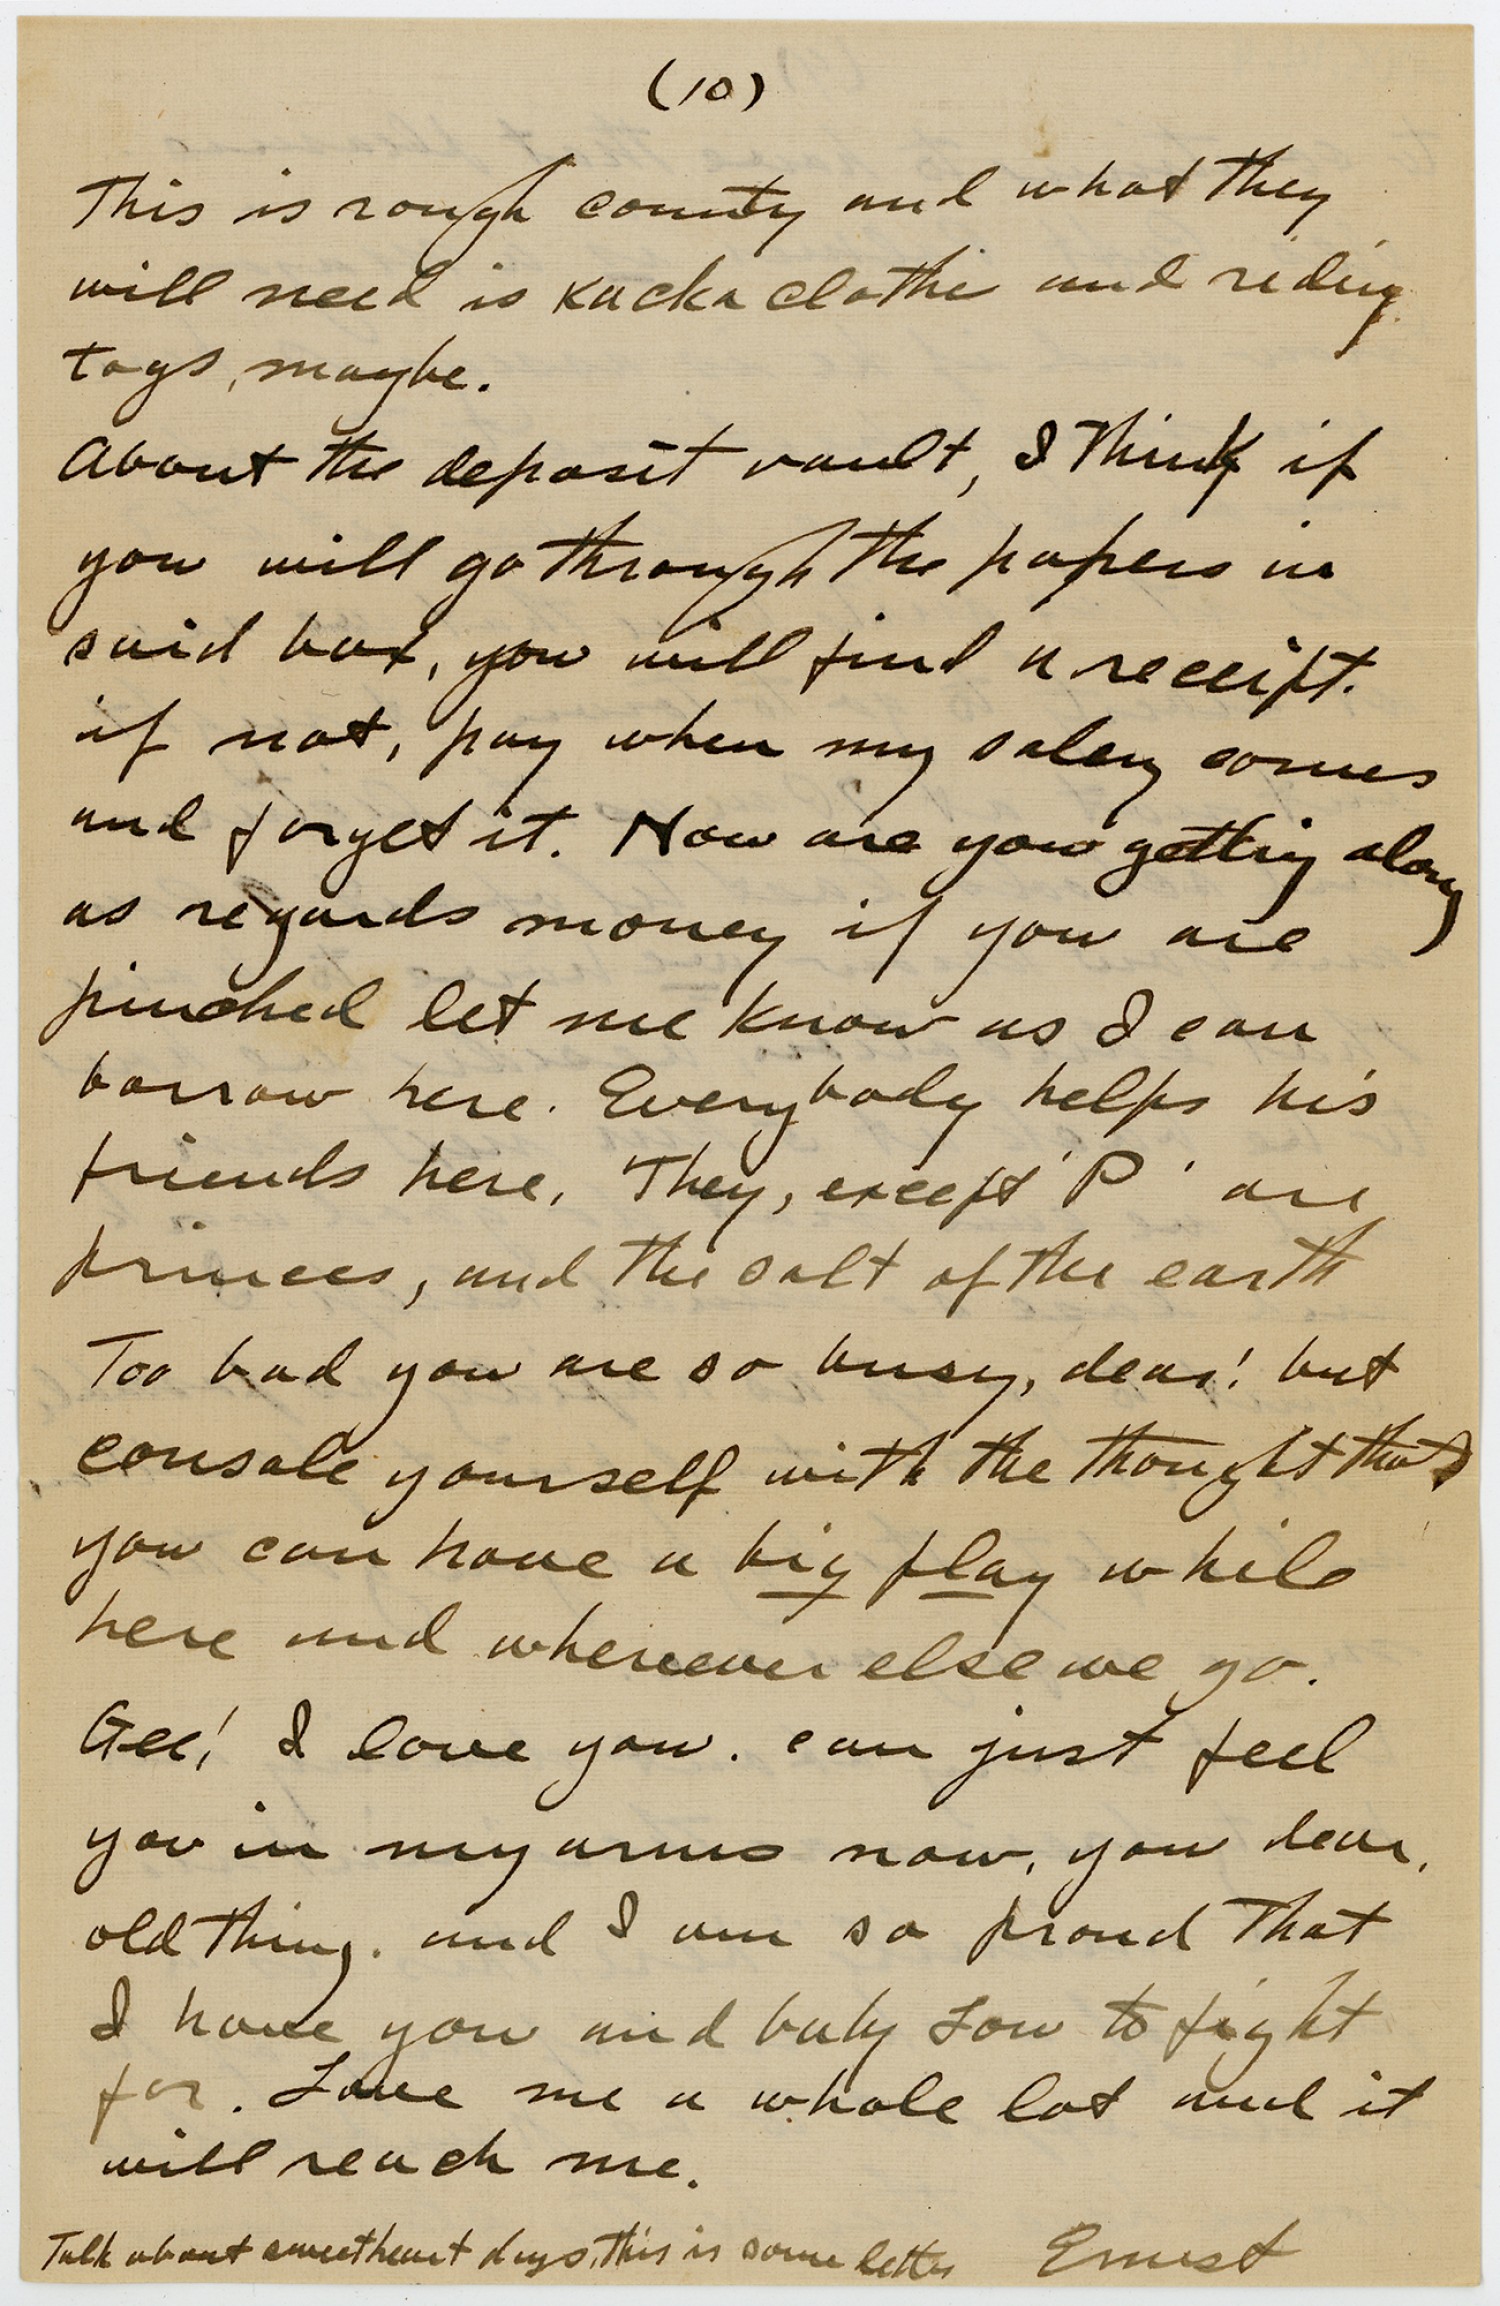 (10)
This is rough county and what they
will need is kacka clothe and riding
togs, maybe.
About the deposit vault, I think if
you will go through the papers in
said box, you will find a receipt.
if not, pay when my salery comes
and forget it. How are you getting along
as regards money if you are
pinched let me know as I can
borrow here. Everybody helps his
friends here. They, except 'P' are
princes, and the salt of the earth
Too bad you are so busy, dear! but
console yourself with the thought that
you can have a big play while
here and whereever else we go.
Gee! I love you. can just feel
you in my arms now, you dear,
old thing. and I am so proud that
I have you and baby Low to fight
for. Love me a whole lot and it
will reach me.
Talk about sweetheart days, this is some letter Ernest